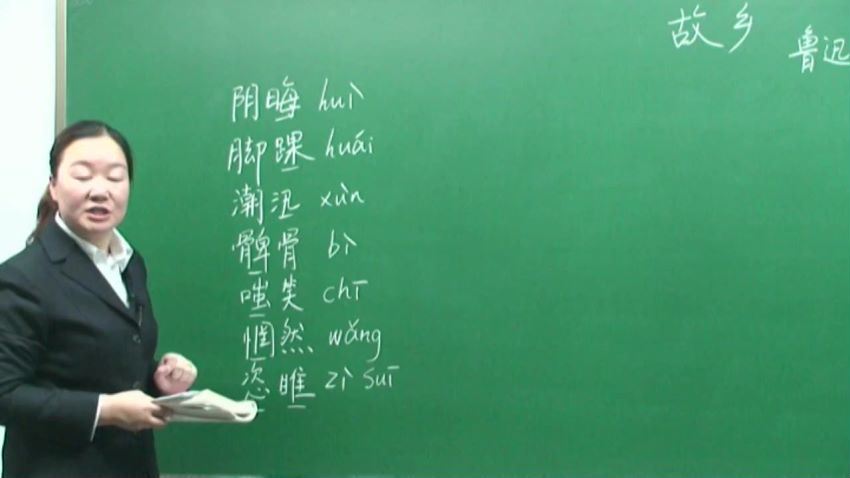 故乡
鲁迅
阴晦 huì
脚踝 huái
潮汛 xùn
髀骨 bì
嗤笑 chī
惘然 wǎng
恣睢 zì suī